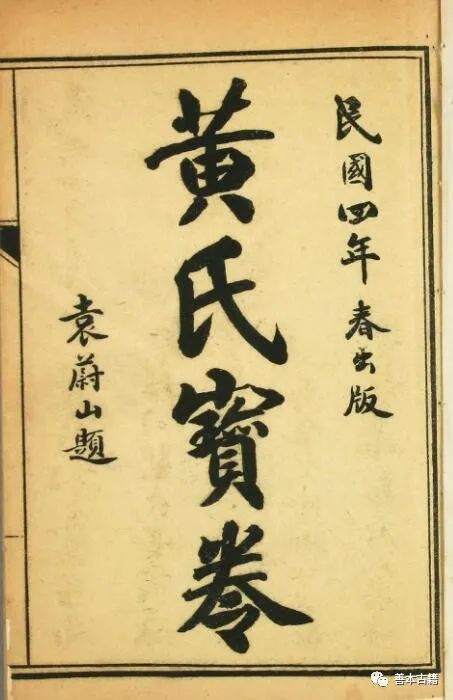 民國四年春出版
黄氏寶卷
袁蔚山題
善本古籍